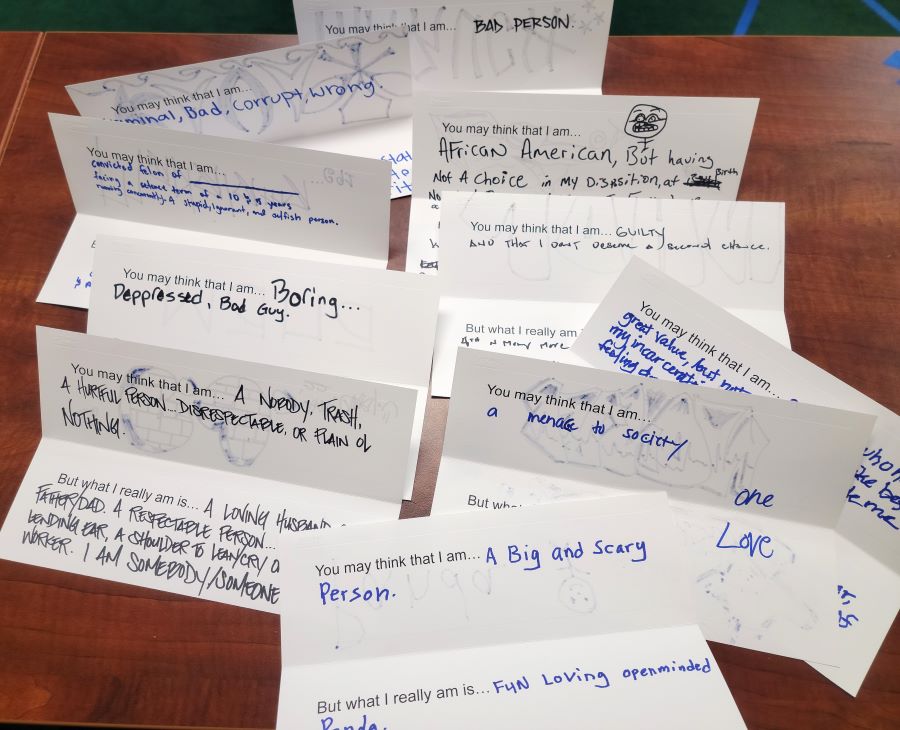 You may think that I am... BAD PERSON.
You may think that I am...
Bad, Corrupt, Wrong.
You may think that I am...
convicted felon of
facing a sentence term of a 10 & 15 years
running concurrently. A stupid, ignorant, and selfish person.
You may think that I am...
AFRICAN AMERICAN, BOT having
NOT A CHOICE in MY D:3RSITION, at Birth
You may think that I am... GUILTY
AND THAT I DON'T DESERVE A SECOND CHANCE.
But what I really am
You may think that I am... Boring...
Deppressed, Bad Guy.
You may think that I am...
great value, but
my incarceration
feeling
You may think that I am... A NOBODY, TRASH,
A HURTFUL PERSON... DISRESPECTABLE, OR PLAIN OL
NOTHING!
But what I really am is... A LOVING HUSBAND
FATHER/DAD. A RESPECTABLE PERSON...
LENDING EAR, A SHOULDER TO LEAN/CRY
WORKER. I AM SOMEBODY/SOMEONE
You may think that I am...
a menace to society
But
one
Love
You may think that I am... A Big and Scary
Person.
But what I really am is... FUN Loving openminded
Panda.